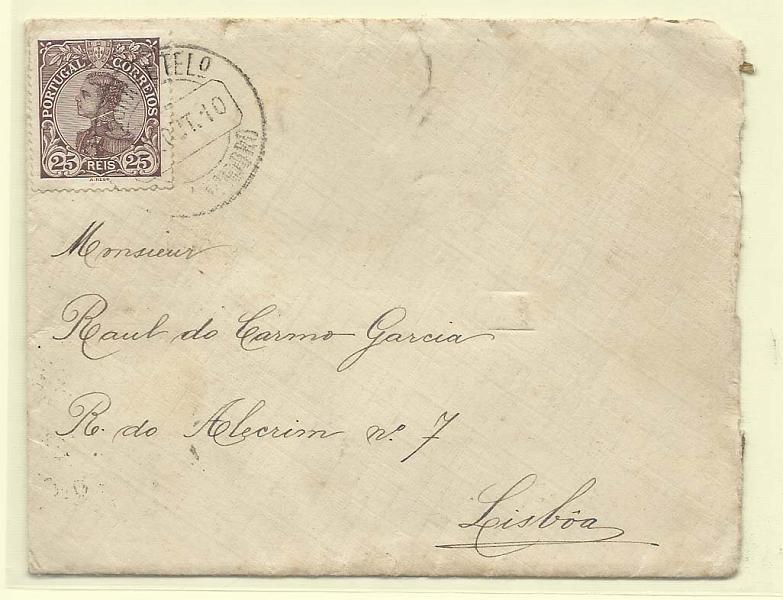 PORTUGAL CORREIOS
25 REIS 25
TELO
OUT. 10
Monsieur
Raul do Carmo Garcia
R. do Alecrim nº 7
Lisbôa